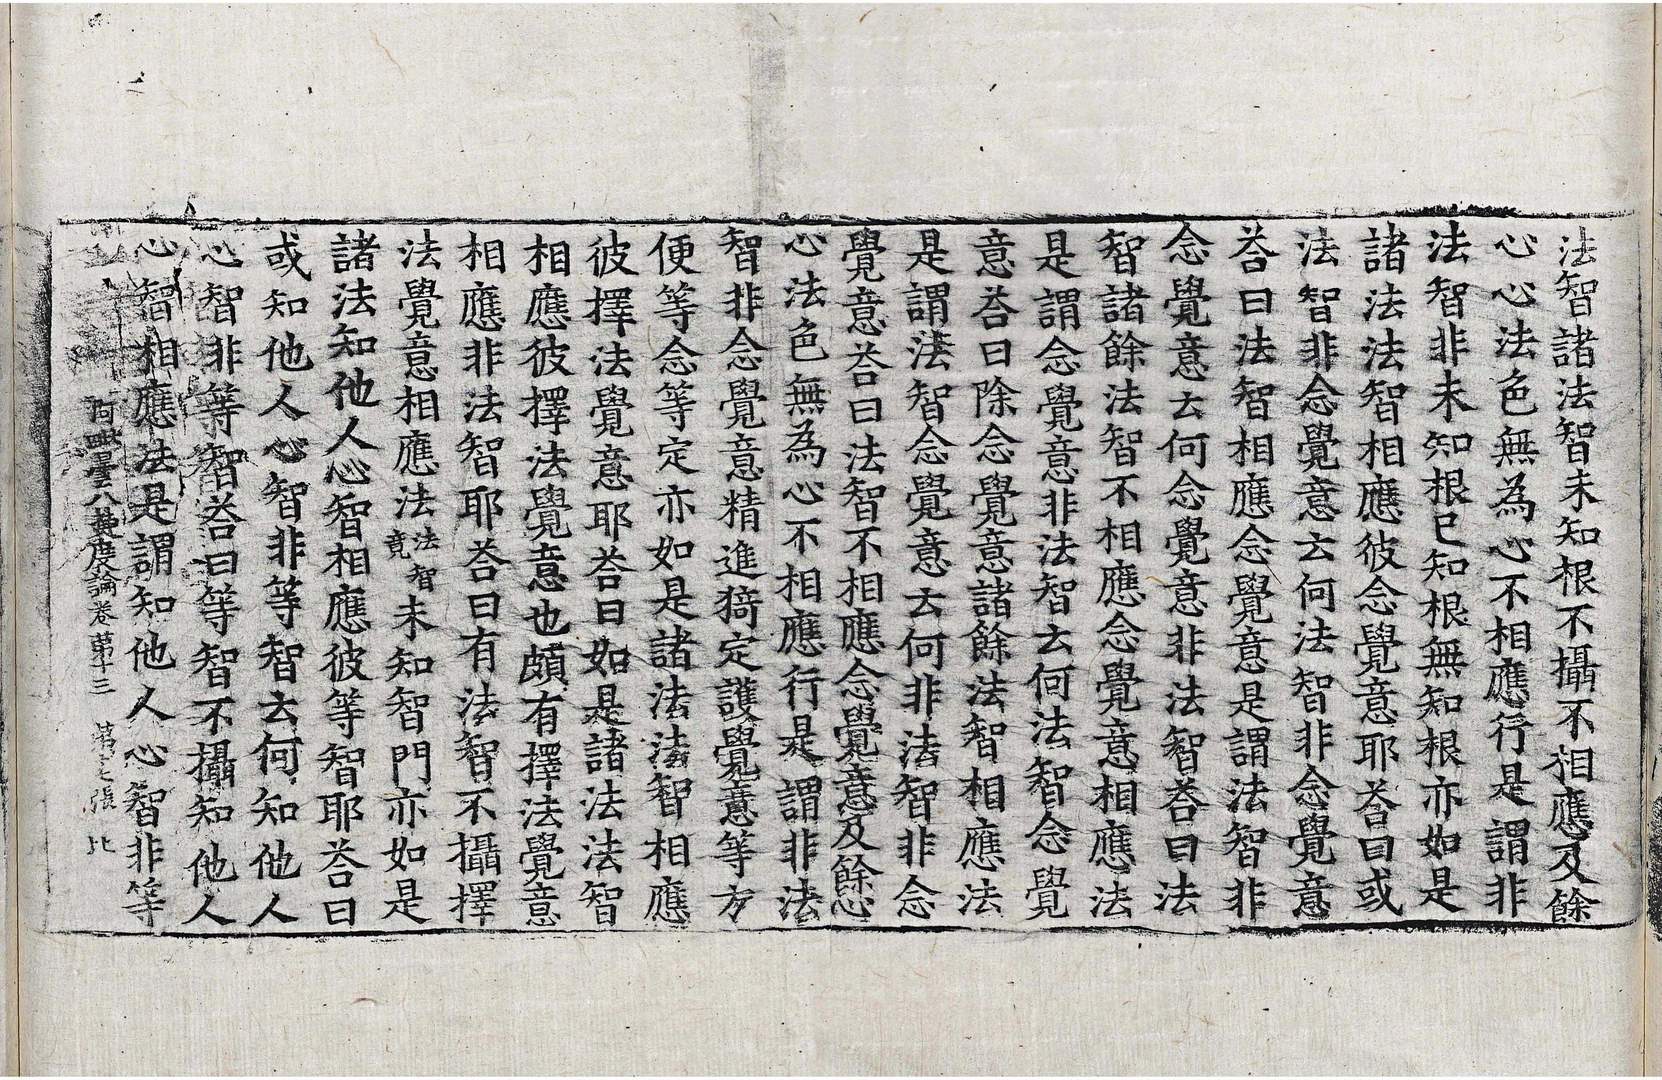 法智諸法智未知根不攝不相應及餘
心心法色無為心不相應行是謂非
法智非未知根已知根無知根亦如是
諸法法智相應彼念覺意耶荅曰或
法智非念覺意云何法智非念覺意
荅曰法智相應念覺意是謂法智非
念覺意云何念覺意非法智荅曰法
智諸餘法智不相應念覺意相應法
是謂念覺意非法智云何法智念覺
意荅曰除念覺意諸餘法智相應法
是謂法智念覺意云何非法智非念
覺意荅曰法智不相應念覺意及餘心
心法色無為心不相應行是謂非法
智非念覺意精進猗定護覺意等方
便等念等定亦如是諸法法智相應
彼擇法覺意耶荅曰如是諸法法智
相應彼擇法覺意也頗有擇法覺意
相應非法智耶荅曰有法智不攝擇
法覺意相應法法智竟未知智門亦如是
諸法知他人心智相應彼等智耶荅曰
或知他人心智非等智云何知他人
心智非等智荅曰等智不攝知他人
心智相應法是謂知他人心智非等
阿毗曇八犍度論卷第十三 第 張 比